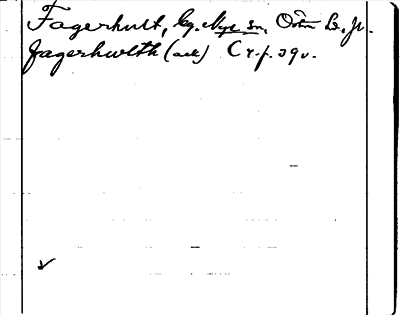 Fagerhult, by. Nye sn, Östra hd, Jk.
Fagerhwlth (ack) C 4. f. 39 v.